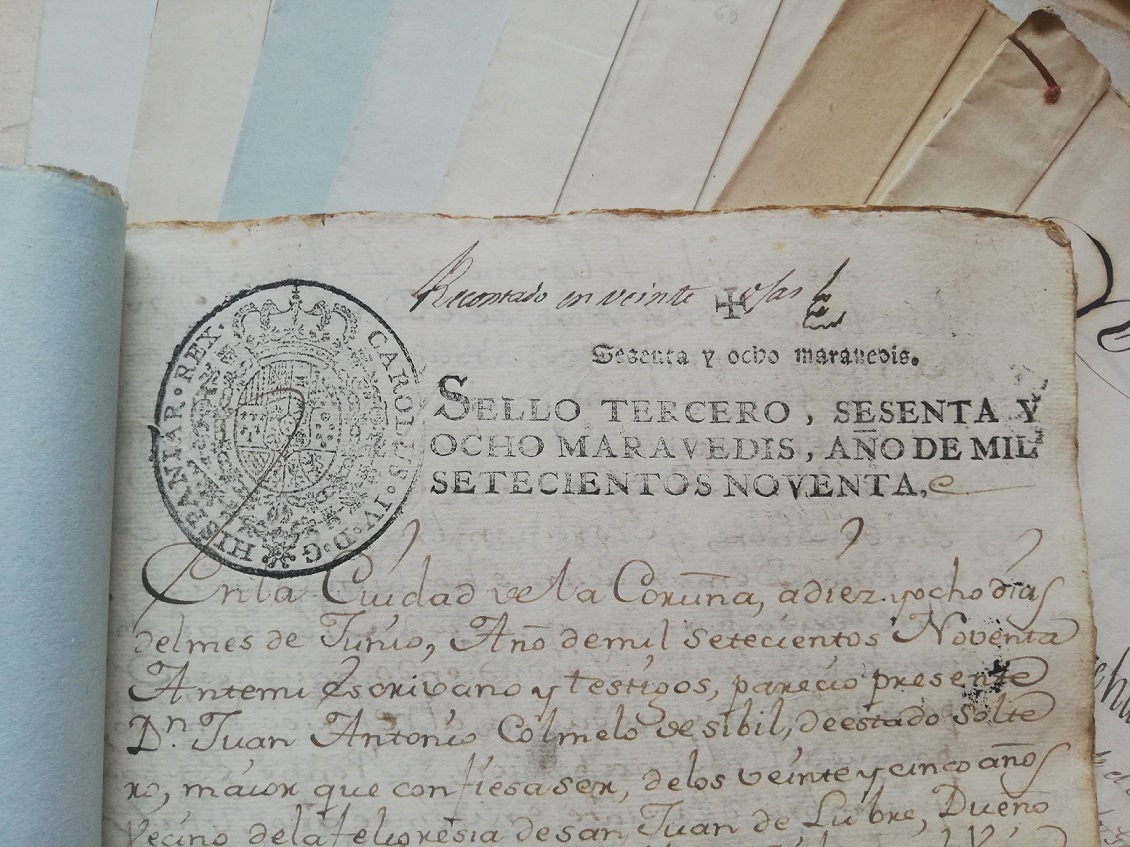 Recontado en veinte ojas
Sesenta y ocho maravedis.
CAROLUS·IV·D·G·HISPANIAR·REX·
SELLO TERCERO, SESENTA Y
OCHO MARAVEDIS, AÑO DE MIL
SETECIENTOS NOVENTA.
En la Ciudad de la Coruña, a diez y ocho dias
del mes de Junio, Año de mil setecientos Noventa
Antemi Escrivano y testigos, parecio presente
Dn Juan Antonio Colmelo de sibil, de estado Solte
ro, maior que confiesa ser, de los veinte y cinco años
Vecino de la feligresia de san Juan de Lubre, Dueño